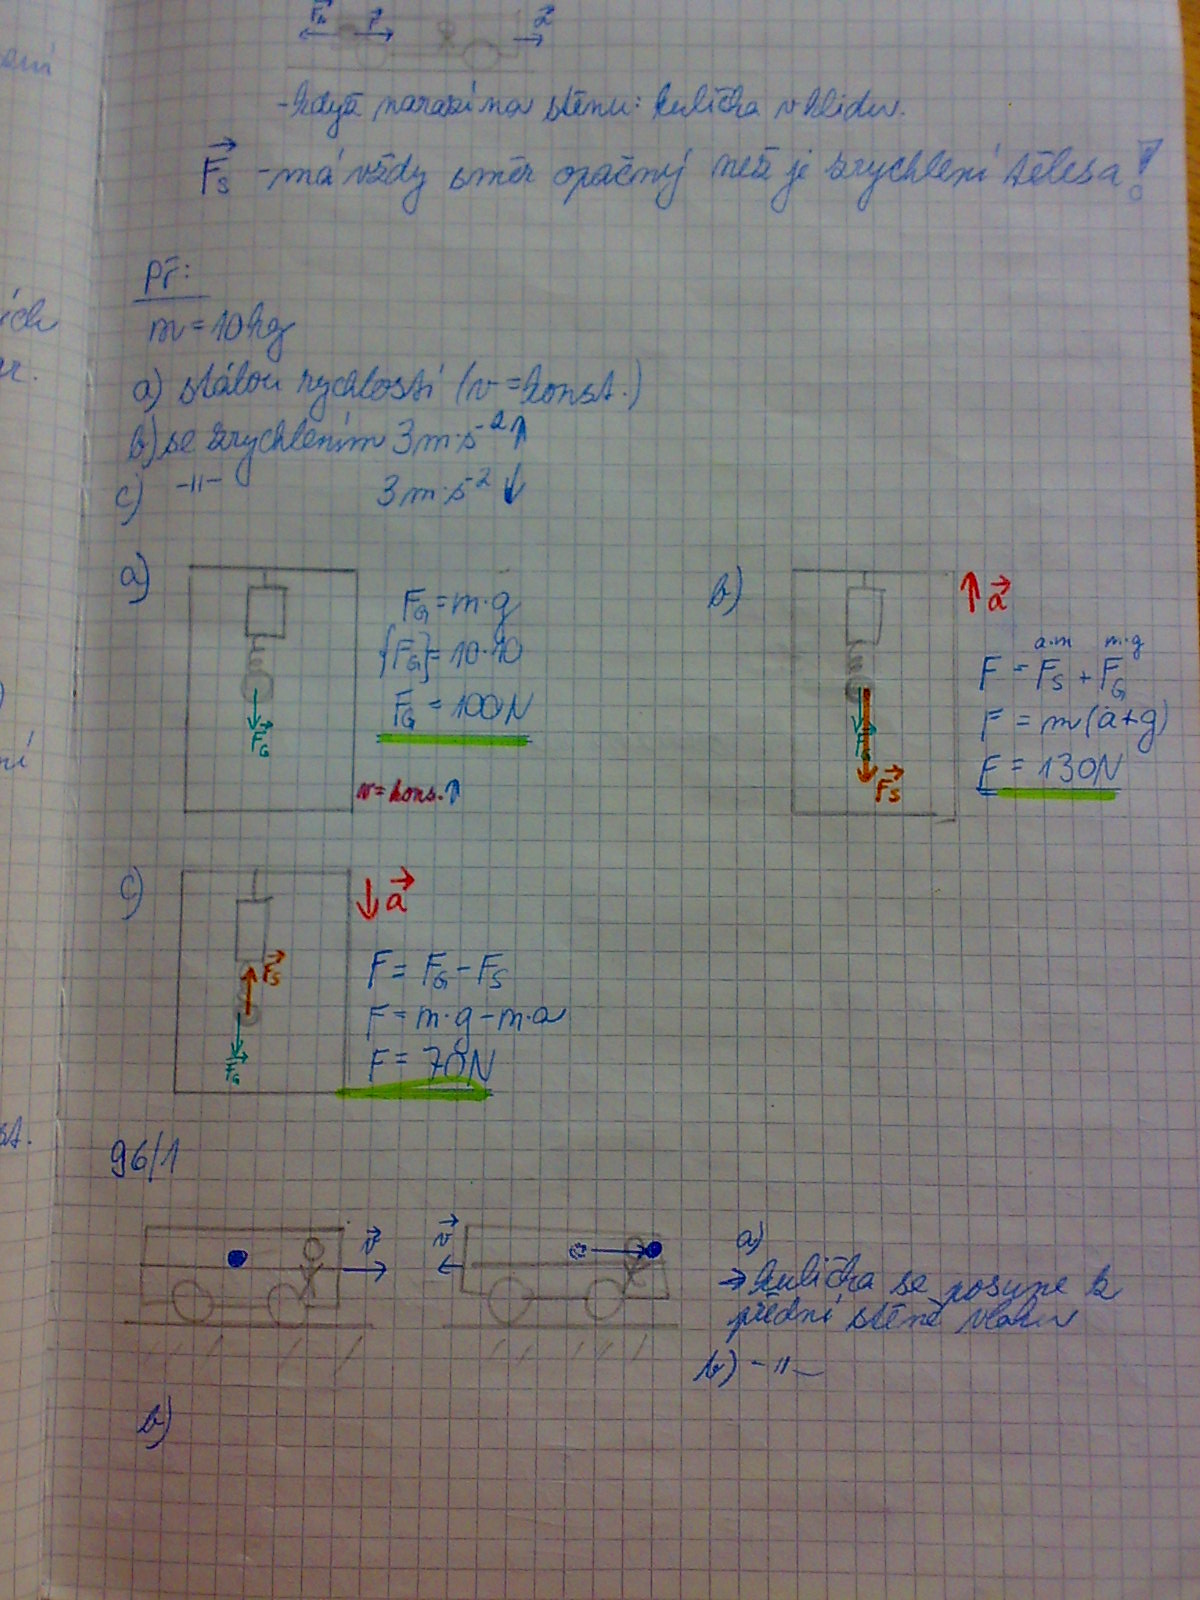 F F a
- když narazí na stěnu: kulička v klidu.
Fs - má vždy směr opačný než je zrychlení tělesa!
Př:
m = 10kg
a) stálou rychlostí (v = konst.)
b) se zrychlením 3m·s⁻² ↑
c) -||- 3m·s⁻² ↓
a)
F_G = m·g
{F_G} = 10·10
F_G = 100N
F_G
v = kons. ↑
b)
↑ a
a·m m·g
F = F_S + F_G
F = m(a+g)
F = 130N
F_S
c)
↓ a
F_S
F = F_G - F_S
F = m·g - m·a
F = 70N
F_G
96/1
v v
a)
→ kulička se posune k
přední stěně vlaku
b) -||-
b)